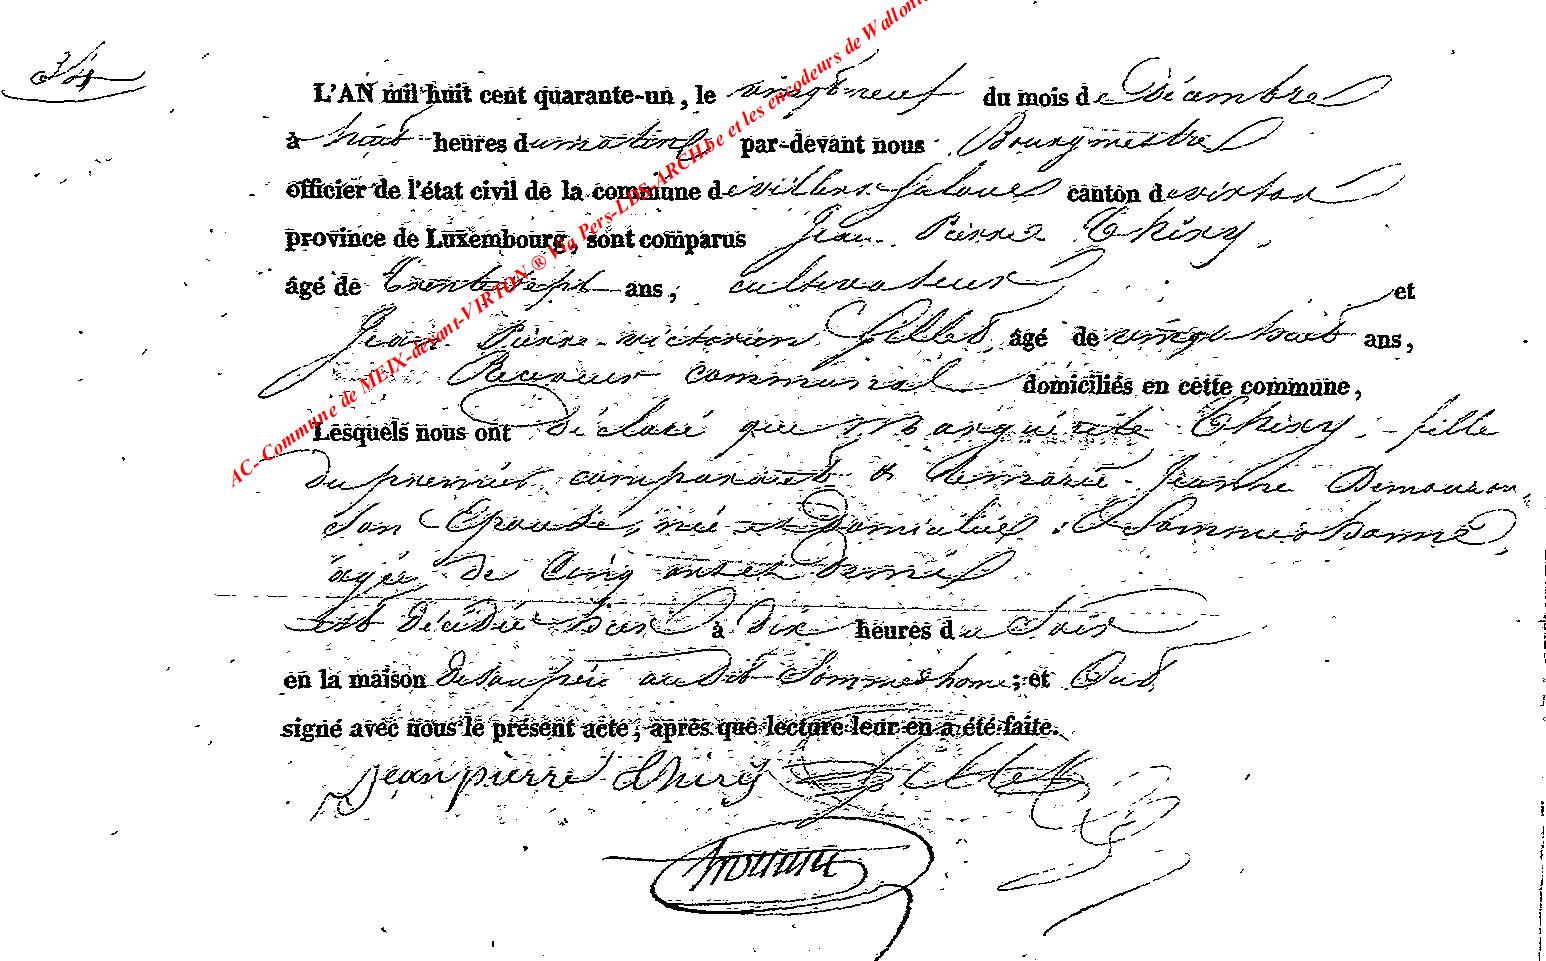 34
L'AN mil huit cent quarante-un, le vingt neuf du mois de Décembre
à huit heures du matin par-devant nous Bourgmestre
officier de l'état civil de la commune de villers Laloue canton de virton
province de Luxembourg, sont comparus Jean Pierre Thiry,
âgé de trente sept ans, cultivateur et
Jean Pierre victorien Gillet, âgé de vingt huit ans,
Receveur communal domiciliés en cette commune,
Lesquels nous ont déclaré que Marguerite Thiry, fille
du premier comparant & de marie Jeanne
son Epouse, née et domiciliée à Sommethonne,
agée de Cinq ans et demi
est décédée hier à dix heures du Soir
en la maison de son père au dit Sommethonne; et Ont
signé avec nous le présent acte, après que lecture leur en a été faite.
jean pierre thiry Gillet
AC- Commune de MEIX-devant-VIRTON ® Via Pers-LDS-ARCH.be et les encodeurs de Wallonie